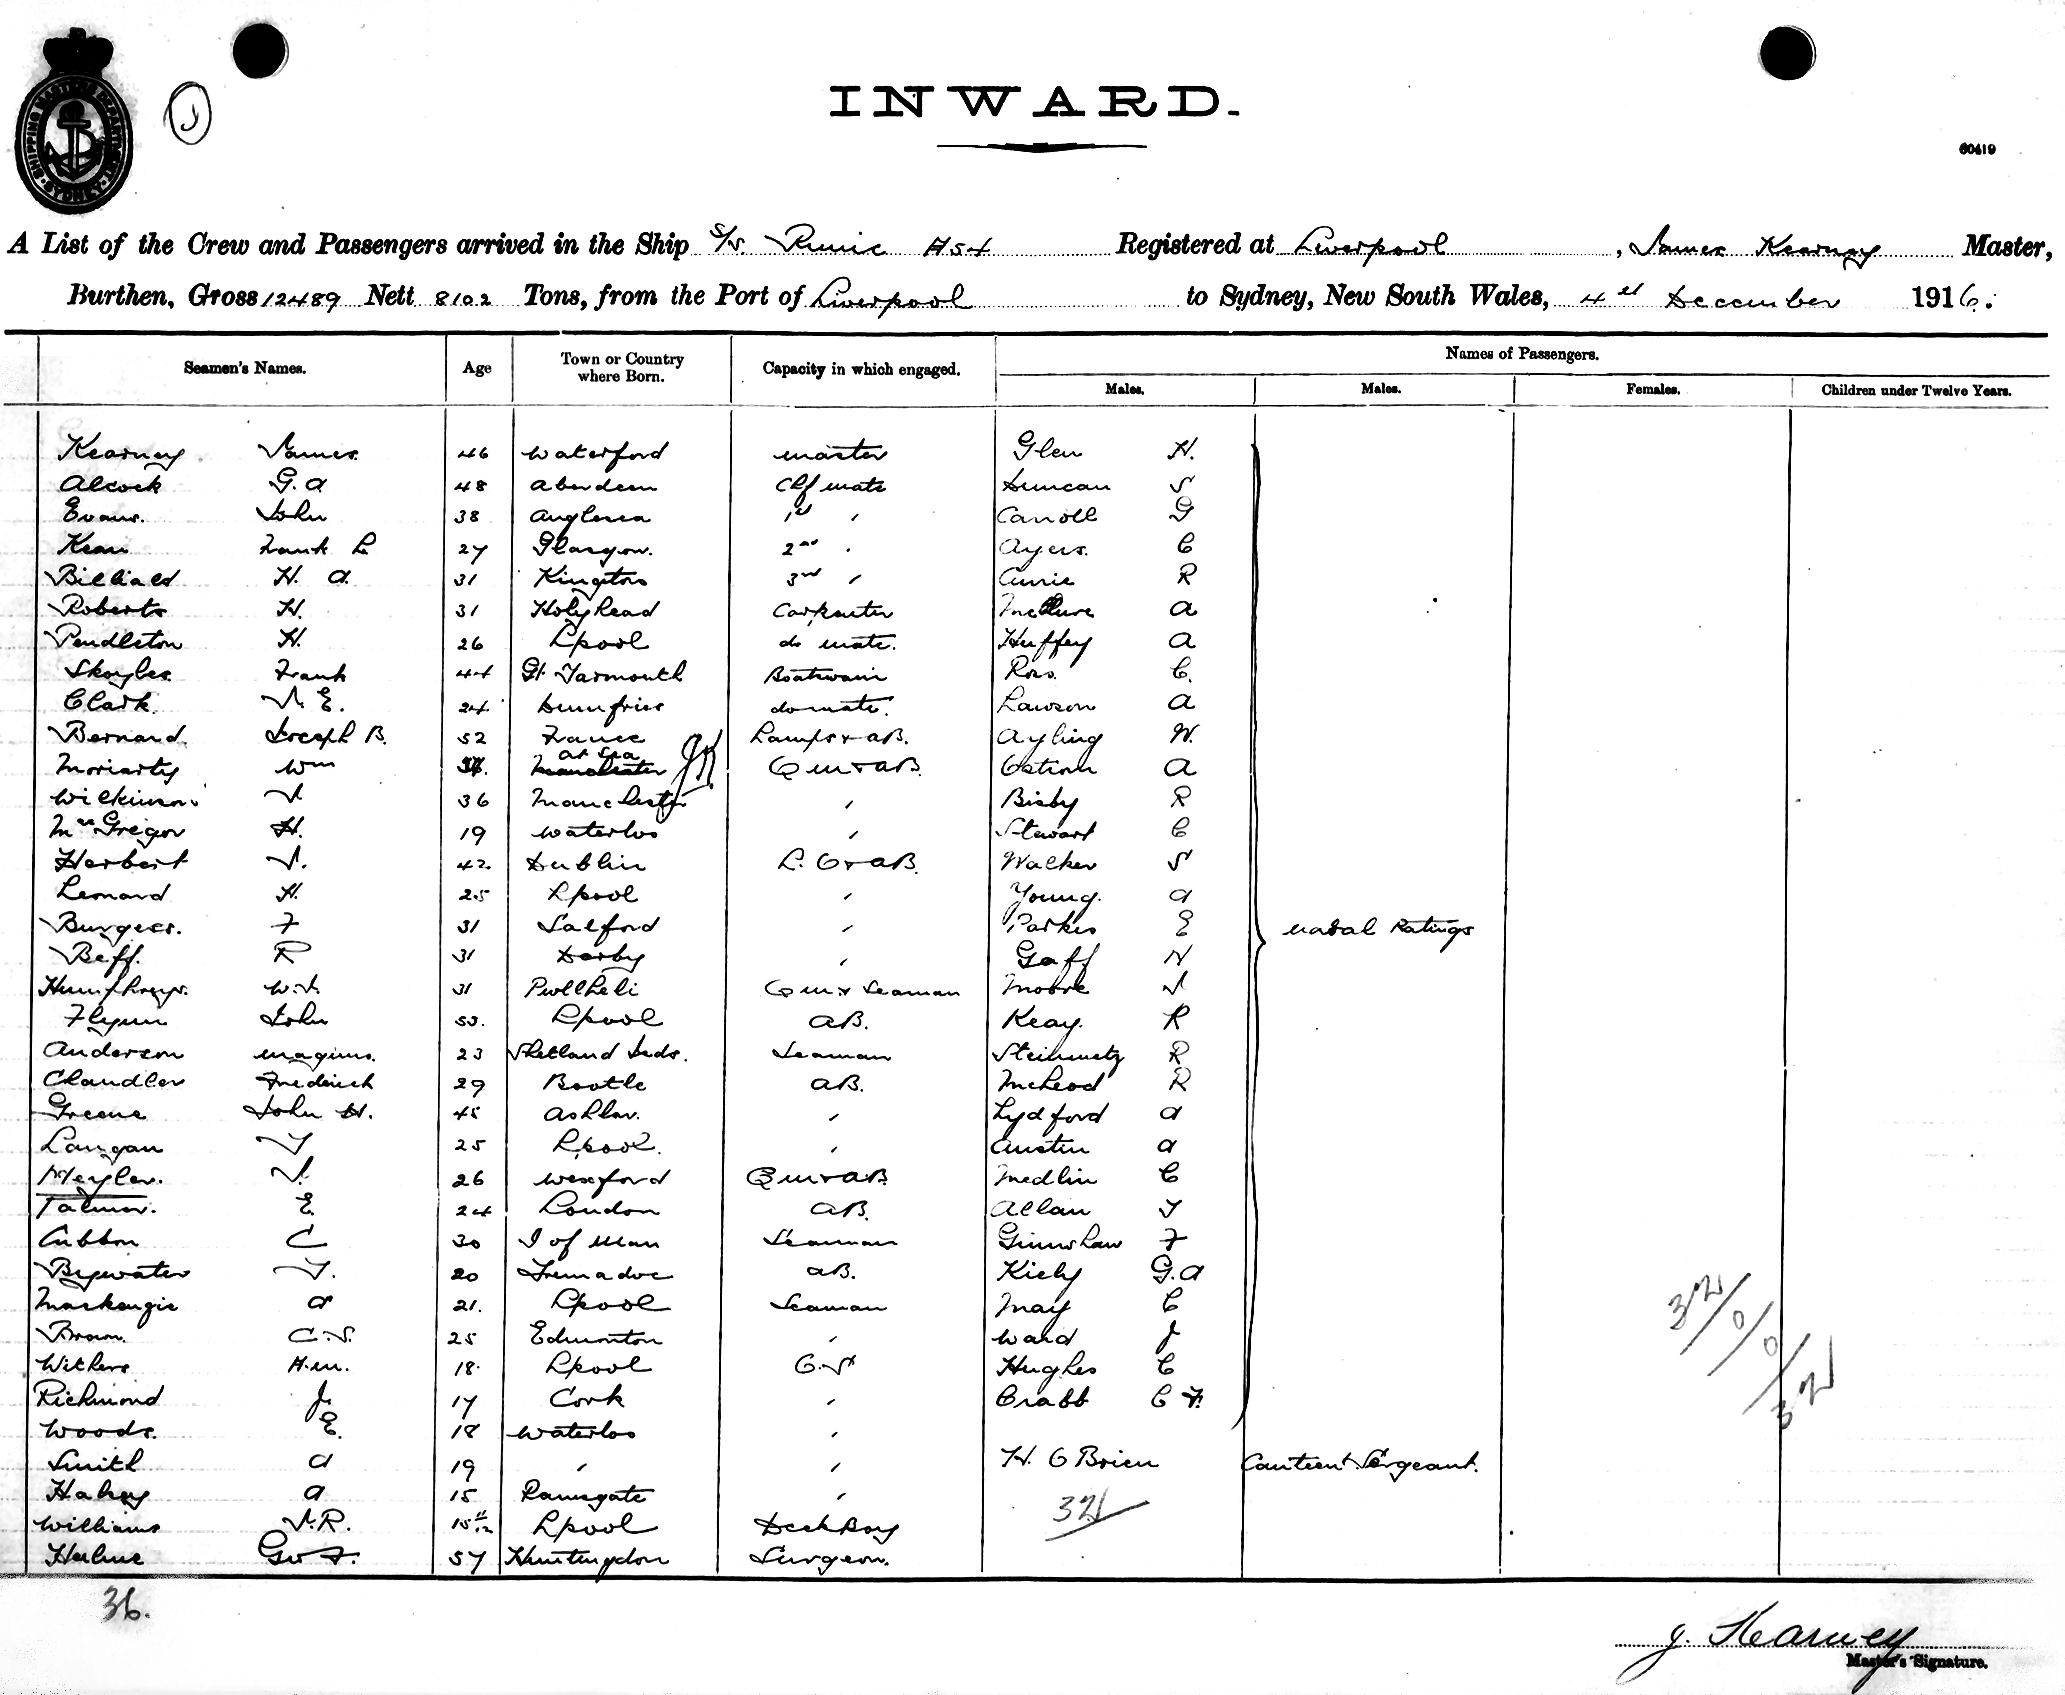 SHIPPING MASTER'S DEPARTMENT
SYDNEY
INWARD.
60419
A List of the Crew and Passengers arrived in the Ship S/S. Runic A54 Registered at Liverpool, James Kearney Master,
Burthen, Gross 12489 Nett 8102 Tons, from the Port of Liverpool to Sydney, New South Wales, 4th December 1916.
Names of Passengers.
Seamen's Names. Age Town or Country where Born. Capacity in which engaged. Males. Males. Females. Children under Twelve Years.
Kearney James 46 Waterford master Glen H.
Alcock G. A 48 Aberdeen Chf mate Duncan J
Evans. John 38 Anglesea 1st " Carroll G
Kean Frank L 27 Glasgow. 2nd " Ayers. C
H. A. 31 Kingston 3rd " Currie R
Roberts H. 31 Holyhead Carpenter McClure A
Pendleton H. 26 Lpool do mate. Huffey A
Skoyles Frank 44 Gt. Yarmouth Boatswain Ross. C.
Clark. J. E. 24 Dumfries do mate. Lawson A
Bernard. Joseph B. 52 France Lamps & AB. Ayling W.
Moriarty Wm At Sea Manchester JK Q M & AB. Ostrom A
Wilkinson J 36 Manchester " Bisby R
McGregor H. 19 Waterloo " Stewart C
Herbert J. 42 Dublin L. O & AB. Walker J
Leonard H. 25 Lpool " Young. A
Burgess. F 31 Salford " Parkes E Naval Ratings
Beff. R 31 Derby " Goff N
Humphreys. W.J. 31 Pwllheli Q M & Seaman Moore J
Flynn John 53. Lpool AB. Keay. R
Anderson Magnus. 23 Shetland Isds. Seaman Steinmetz R
Chandler Frederick 29 Bootle AB. McLeod R
Greene John H. 45 " Lydford A
Langan T 25 Lpool. " Austin A
Meyler. J. 26 Wexford Q M & AB. Medlin C
E. 24 London AB. Allan T
Cubbon C 30 I of Man Seaman Grimshaw F
Bygwater T. 20 Tremadoc AB. Kiely G. A
Mackenzie A 21. Lpool Seaman May C
Brown. C. J. 25 Edmonton " Ward J
Withers H.M. 18. Lpool O.S Hughes C
Richmond J. 17 Cork " Crabb C F.
Woods. E. 18 Waterloo "
Smith A 19 " " H. O Brien Canteen Sergeant.
A 15 Ramsgate " 32
Williams J.R. 15 11/12 Lpool Deck Boy
Hulme Geo F. 57 Huntingdon Surgeon.
32/0/0/32
36.
J. Kearney
Master's Signature.